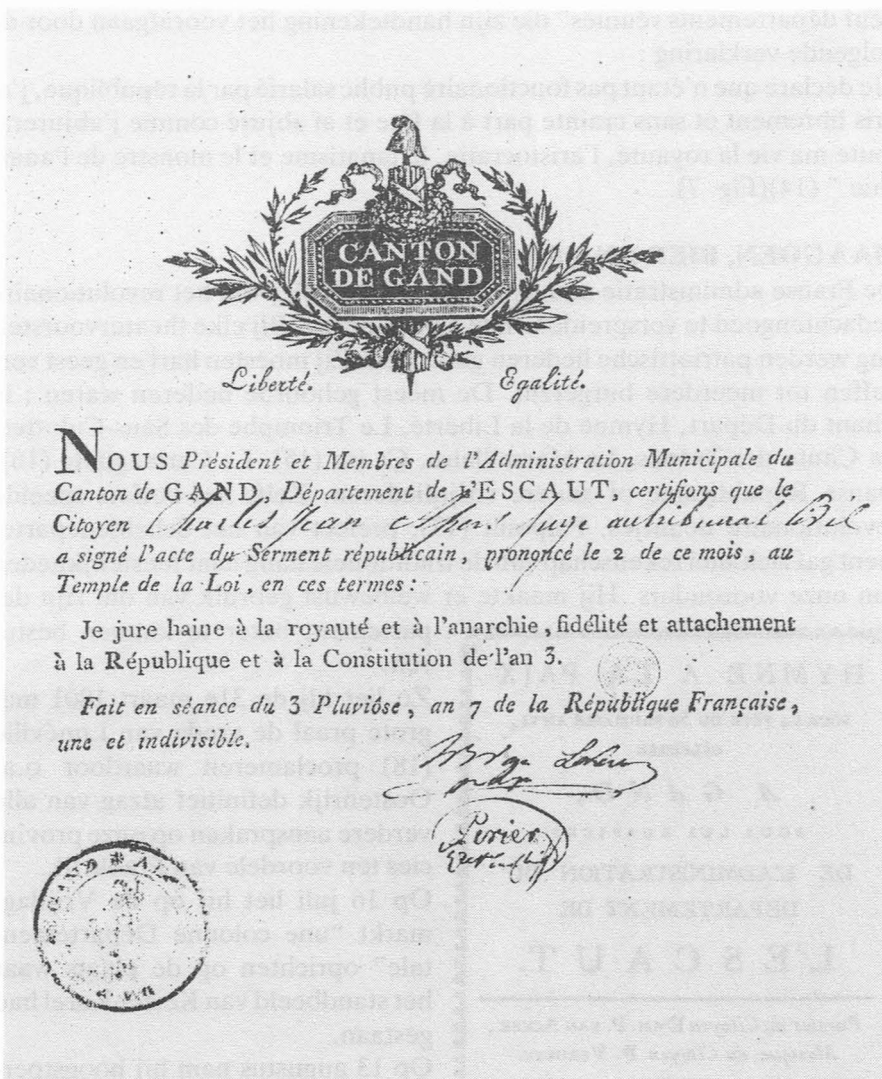 CANTON
DE GAND
Liberté. Egalité.
NOUS Président et Membres de l'Administration Municipale du
Canton de GAND, Département de L'ESCAUT, certifions que le
Citoyen Charles Jean Juge au tribunal
a signé l'acte du Serment républicain, prononcé le 2 de ce mois, au
Temple de la Loi, en ces termes:
Je jure haine à la royauté et à l'anarchie, fidélité et attachement
à la République et à la Constitution de l'an 3.
Fait en séance du 3 Pluviôse, an 7 de la République Française,
une et indivisible.
Perier